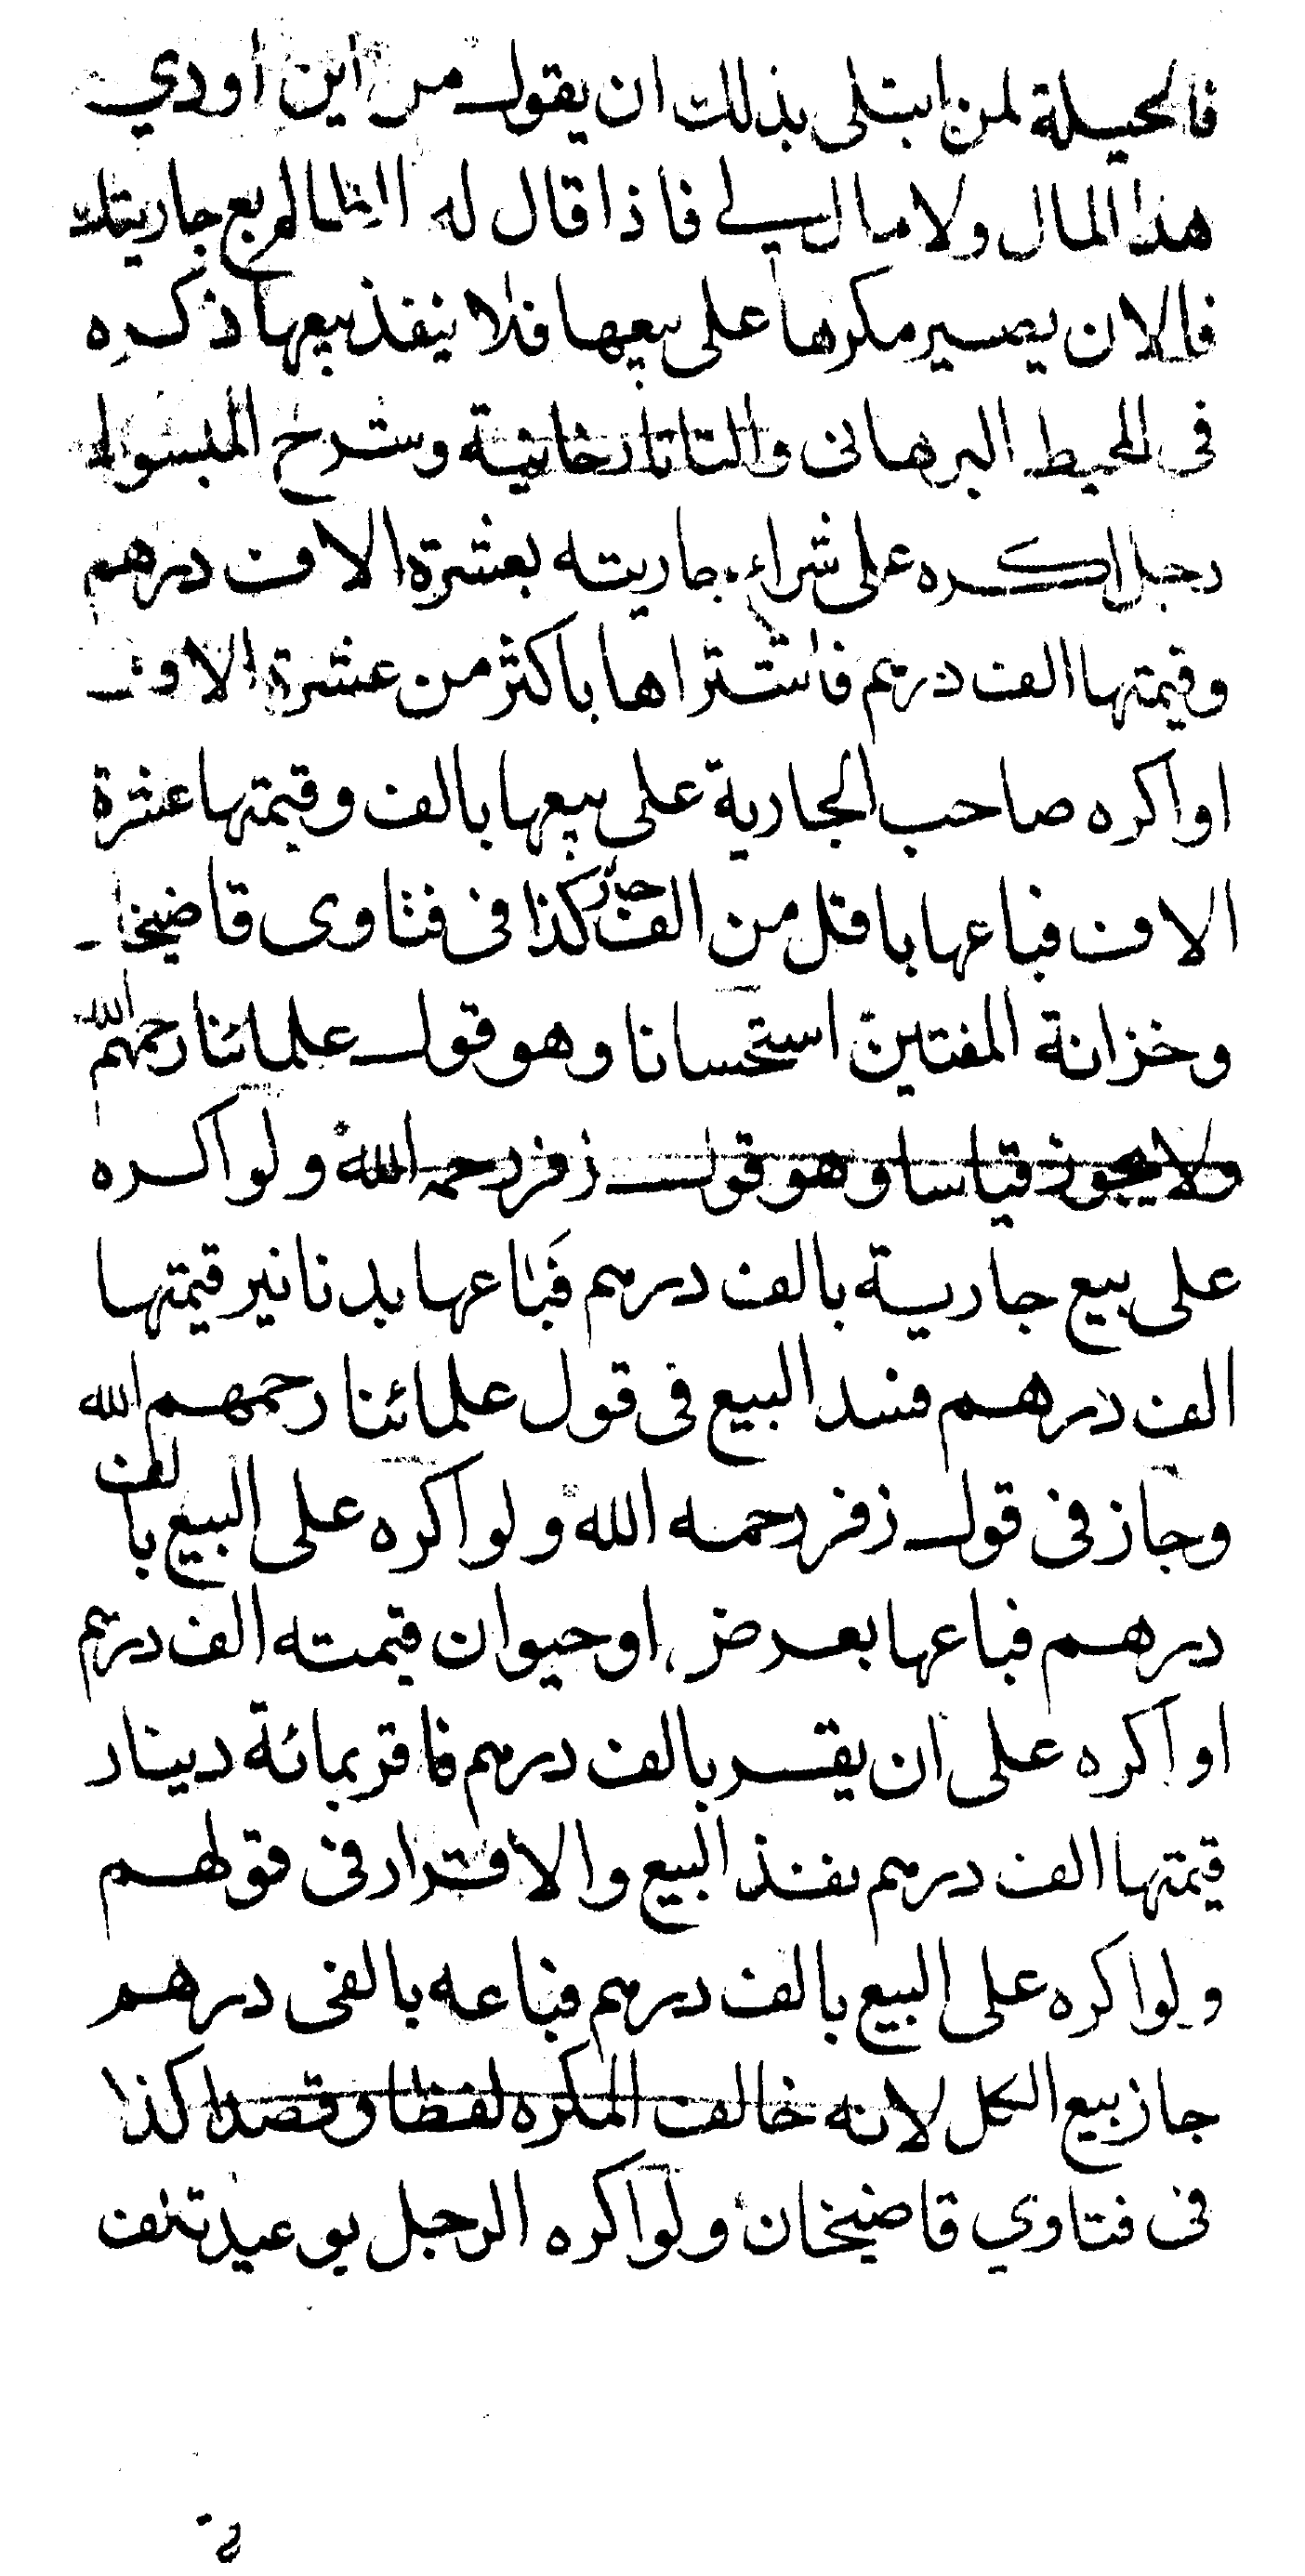 فالحيلة لمن ابتلى بذلك ان يقول من اين اودي
هذا المال ولا مال لي فاذا قال له الظالم بع جاريتك
فالان يصير مكرها على بيعها فلا ينفذ بيعها ذكره
فى المحيط البرهانى والتاتارخانية وشرح المبسوط
رجل اكره على شراء جاريته بعشرة الاف درهم
وقيمتها الف درهم فاشتراها باكثر من عشرة الاف
او اكره صاحب الجارية على بيعها بالف وقيمتها عشرة
الاف فباعها باقل من الف جاز كذا فى فتاوى قاضيخان
وخزانة المفتين استحسانا وهو قول علمائنا رحمهم الله
ولا يجوز قياسا وهو قول زفر رحمه الله ولو اكره
على بيع جارية بالف درهم فباعها بدنانير قيمتها
الف درهم فسد البيع فى قول علمائنا رحمهم الله
وجاز فى قول زفر رحمه الله ولو اكره على البيع بالف
درهم فباعها بعرض او حيوان قيمته الف درهم
او اكره على ان يقر بالف درهم فاقر بمائة دينار
قيمتها الف درهم نفذ البيع والاقرار فى قولهم
ولو اكره على البيع بالف درهم فباعه بالفى درهم
جاز بيع الكل لانه خالف المكره لفظا وقصدا كذا
فى فتاوي قاضيخان ولو اكره الرجل بوعيد تلف